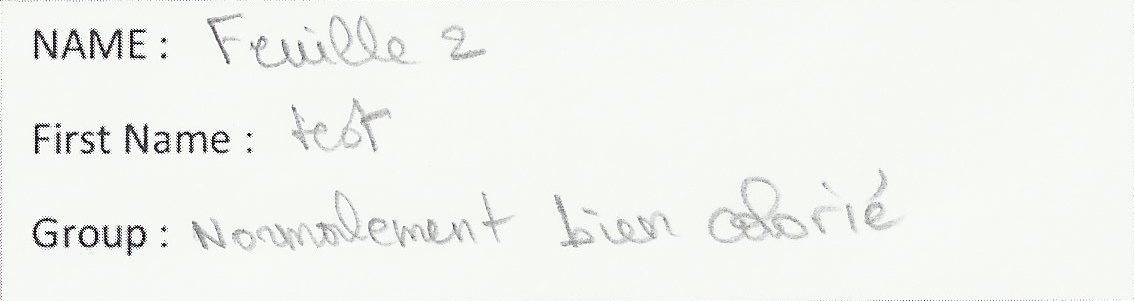 NAME : Feuille 2
First Name : test
Group : Normalement bien colorié